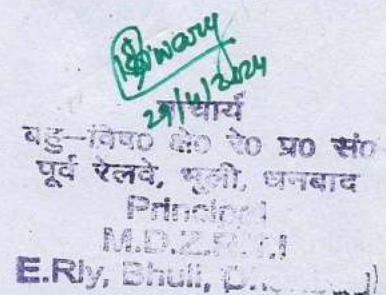 29/4/2024
प्राचार्य
बहु–विष० क्षे० रे० प्र० सं०
पूर्व रेलवे, भुली, धनबाद
Principal
M.D.Z.R.T.I
E.Rly, Bhuli, (Dhanbad)